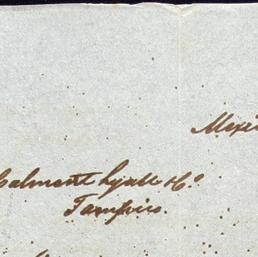 Mexi
Calmont Lyall & Co
Tampico.